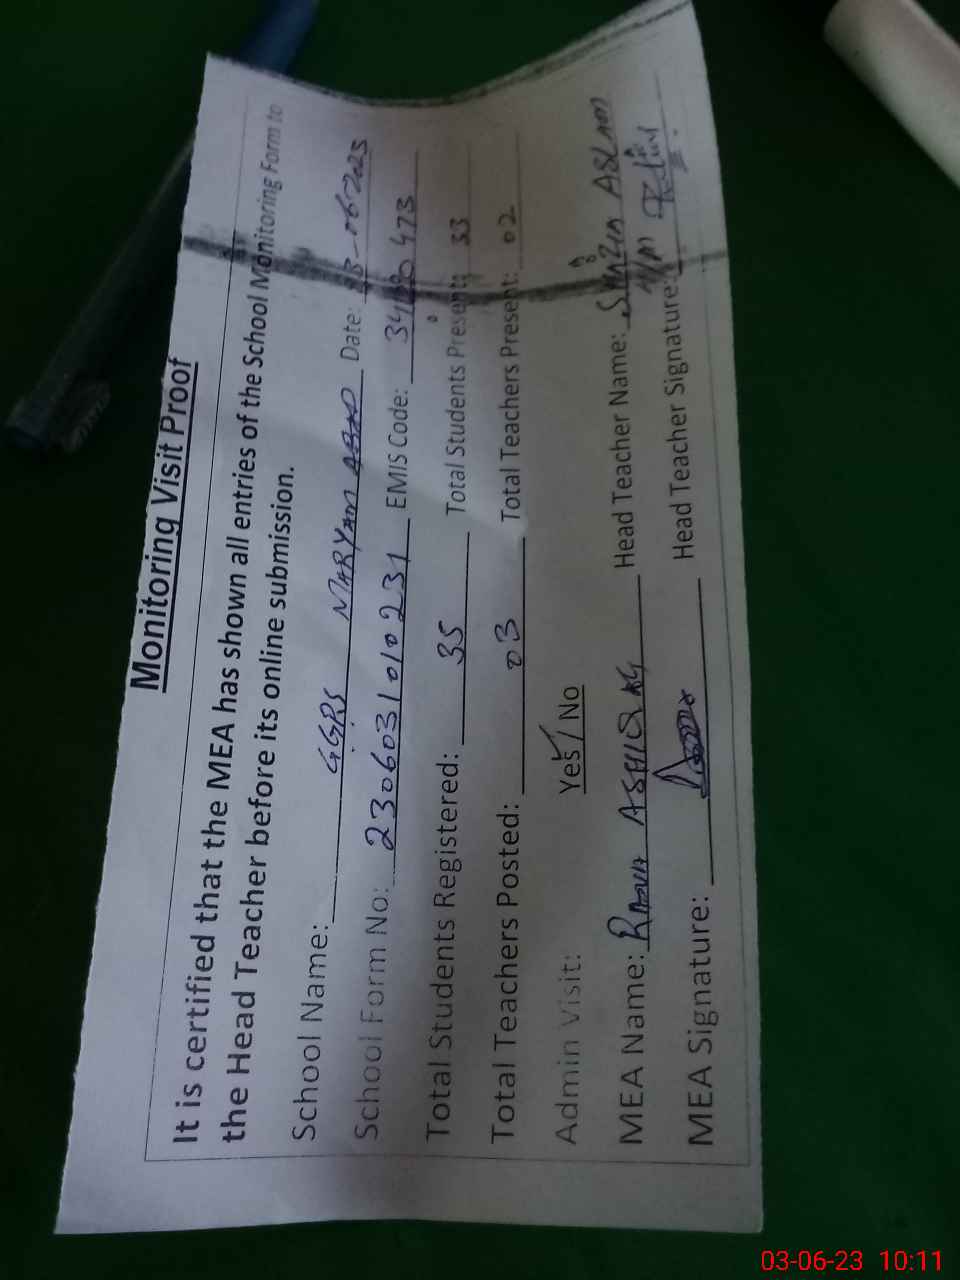 Monitoring Visit Proof
It is certified that the MEA has shown all entries of the School Monitoring Form to
the Head Teacher before its online submission.
School Name: GGPS MARYAM ABAD Date: 03-06-2023
School Form No: 230603101010231 EMIS Code: 473
Total Students Registered: 35 Total Students Present: 33
Total Teachers Posted: 03 Total Teachers Present: 02
Admin Visit: Yes / No
MEA Name: ASHIQ Head Teacher Name: ASLAM
MEA Signature: Head Teacher Signature:
03-06-23 10:11